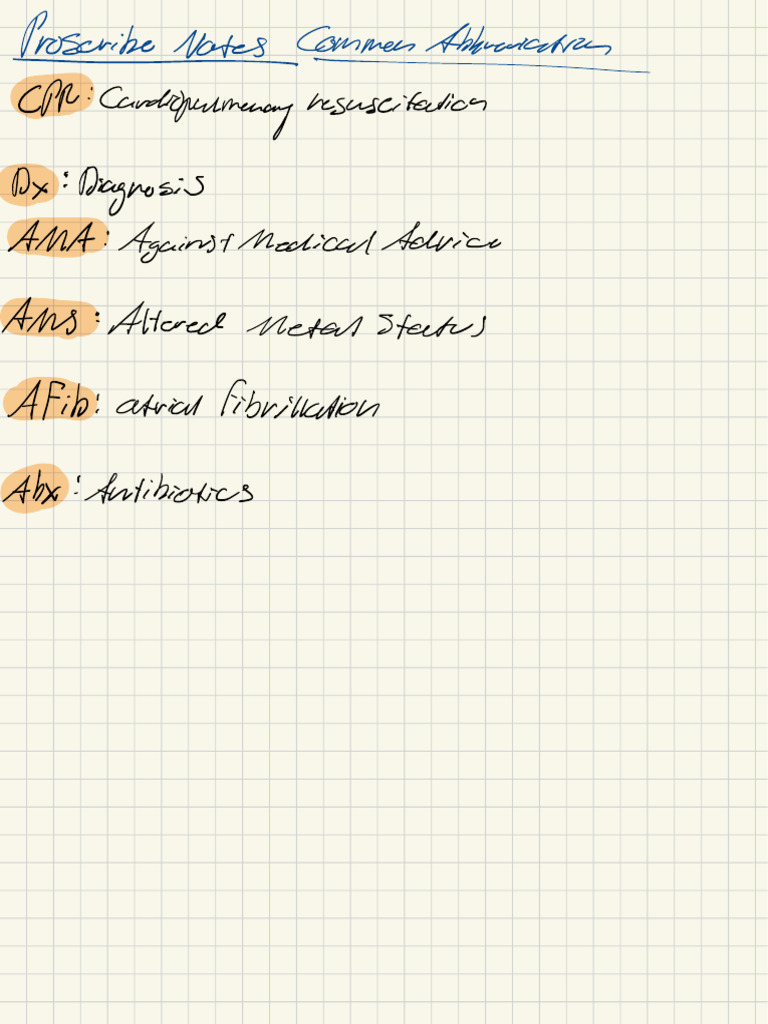 Proscribe Notes Common Abbreviations
CPR: Cardiopulmonary resuscitation
Dx: Diagnosis
AMA: Against Medical Advice
AMS: Altered Metal Status
AFib: atrial fibrillation
Abx: Antibiotics